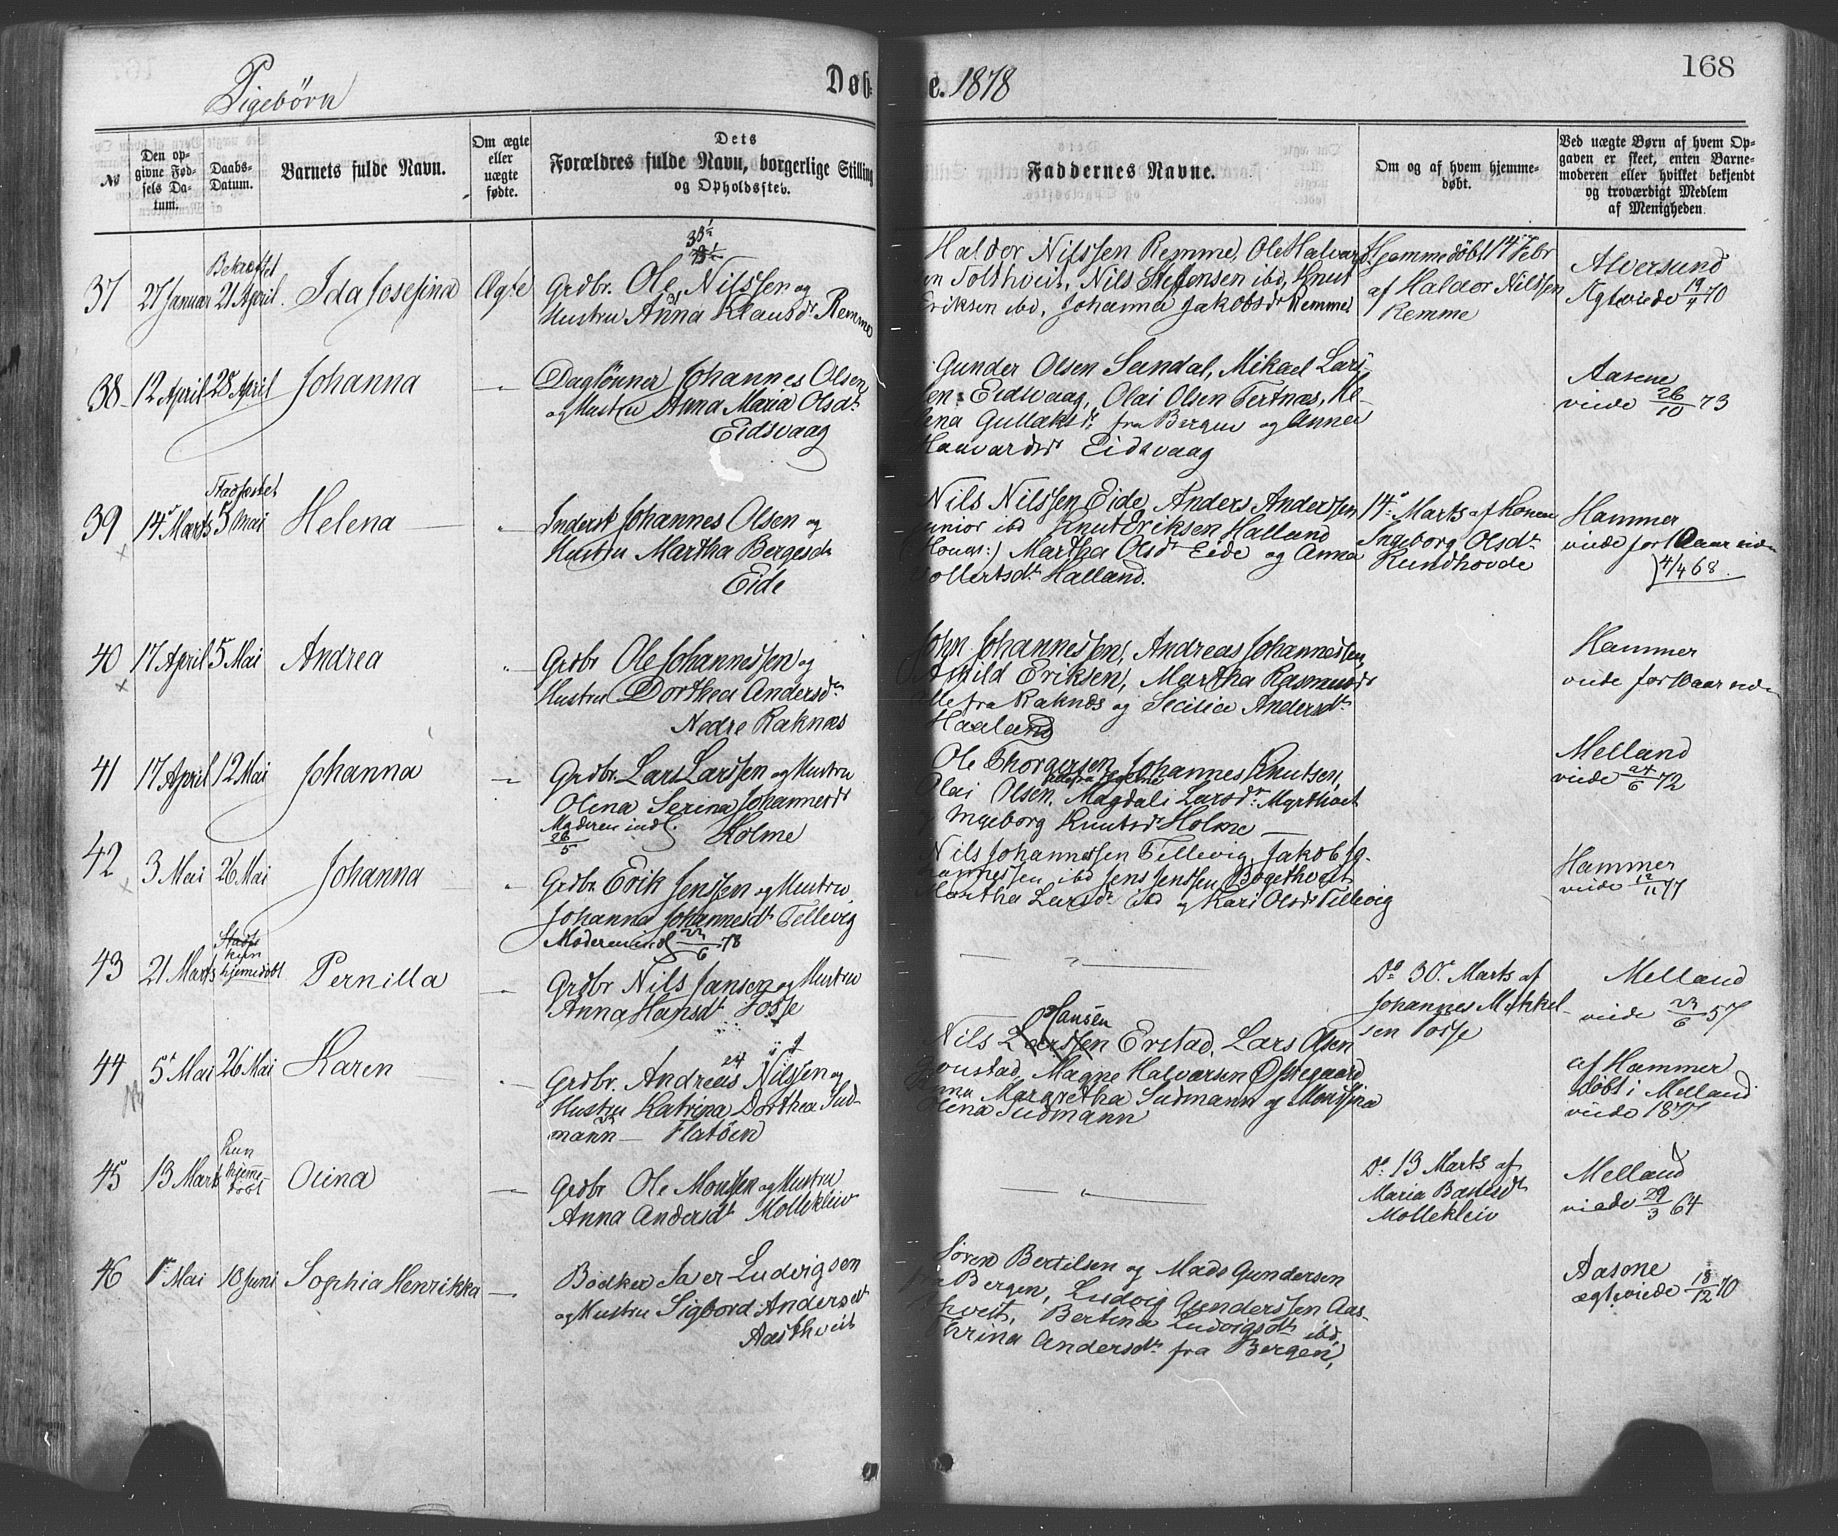 168
Pigebørn
Døb- e. 1878
№
Den op-
givne Fød-
sels Da-
tum.
Daabs-
Datum.
Barnets fulde Navn.
Om ægte
eller
uægte
fødte.
Dets
Forældres fulde Navn, borgerlige Stilling
og Opholdssted.
Faddernes Navne.
Om og af hvem hjemme-
døbt.
Ved uægte Børn af hvem Op-
gaven er skeet, enten Barne-
moderen eller hvilket bekjendt
og troværdigt Medlem
af Menigheden.
37
27 Januar
Bekræftet
21 April.
Ida Josefina
Ægte
Grdbr. Ole Nilssen og
Hustru Anna Klausdr Remme
Haldor Nilssen Remme, Ole Halvor
Tolthveit, Nils Steffensen ibd, Knut
Eriksen ibd, Johanna Jakobsdr Remme
Hjemmedøbt 14 Febr
af Haldor Nilssen
Remme
Alversund
Ægteviede 19/4 70
38
12 April
28 April
Johanna
Daglønner Johannes Olsen
og Hustru Anna Maria Olsdt
Eidsvaag
Gunder Olsen Sandal, Mikael Lari-
sen Eidsvaag, Olai Olsen Tertnæs, He-
lena Gullaksdr fra Bergen og Anna
Haavardsdt Eidsvaag
Aasene
viede 26/10 73
39
14 Marts
Stadfæstet
5 Mai
Helena
Inderst Johannes Olsen og
Hustru Martha Bergesdr
Eide
Nils Nilssen Eide, Anders Anderssen
junior ibd Knut Eriksen Halland
(Hougs:) Martha Olsdt Eide og Anna
Vollertsdt Halland.
14 Marts af Konen
Ingeborg Olsdt
Rundhovde
Hammer
viede for 10 aar siden
4/4 68.
40
17 April
5 Mai
Andrea
Grdbr Ole Johannessen og
Hustru Dorthea Andersdr
Nedre Raknæs
John Johannessen, Andreas Johannessen,
Eriksen, Martha Rasmusdt
alle fra Raknæs og Secilia Andersdt
Haaland
Hammer
viede for 10 aar siden
41
17 April
12 Mai
Johanna
Grdbr. Lars Larssen og Hustru
Olina Serina Johannesdt
Moderen indl. Holme
26/5
Ole Thorgersen, Johannes Knutsen,
Olai Olsen, Magdali Larsdr Myrthvet
Ingeborg Knutsdr Holme
Melland
viede 24/6 72
42
3 Mai
26 Mai
Johanna
Grdbr. Erik Jenssen og Hustru
Johanna Johannesdt Tellevig
Moderen indl 23/6 78
Nils Johannessen Tellevig, Jakob Jo-
hannessen ibd Jens Jenssen Bøgethveit
Martha Larsdr ibd og Kari Olsdr Tellevig
Hammer
viede 12/11 77
43
21 Marts
kun
hjemedøbt
Pernilla
Grdbr Nils Jansen og Hustru
Anna Hansdt Fosse
Do 30 Marts af
Johannes Mikkel-
sen
Melland
viede 23/6 57
44
5 Mai
26 Mai
Karen
Grdbr. Andreas Nilssen og
Hustru Katrina Dorthea Sud-
mann - Flatøen
Hansen
Nils Larssen Erstad, Lars Olsen
Magne Halvorsen Østegaard
Anna Margretha Sudmann og Monsina
Olena Sudmann
af Hammer
døbt i Melland
viede 1877
45
13 Marts
Kun
hjemme-
døbt
Olina
Grdbr Ole Monssen og Hustru
Anna Andersdt Møllekleiv
Do 13 Marts af
Maria
Møllekleiv
Melland
viede 29/3 64
46
1 Mai
10 Juni
Sophia Henrikka
Bødker Ludvigsen
og Hustru Sigbord Andersdt
Aasthveit
Søren Bertilsen og Mads Gundersen
fra Bergen, Ludvig Gunderssen Aas-
thveit, Bertina Ludvigsdt ibd,
Andersdt fra Bergen,
Aasene
ægteviede 18/12 70